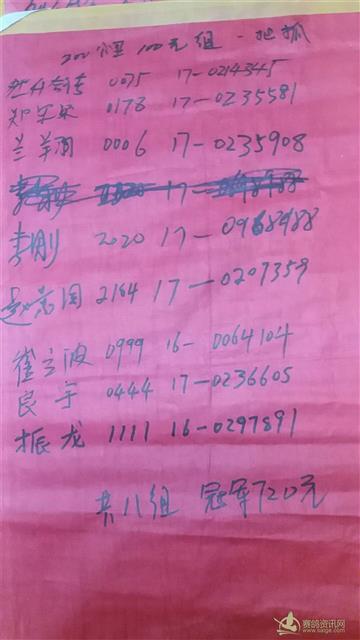 200 100元组 一把抓
0075 17-0214345
郑军 0178 17-0235581
兰羊羽 0006 17-0235908
李刚 2020 17-0968988
赵 2164 17-0207359
崔立波 0999 16-0064104
良宇 0444 17-0236605
振龙 1111 16-0297891
共八组 冠军720元
赛鸽资讯网
www.saige.com